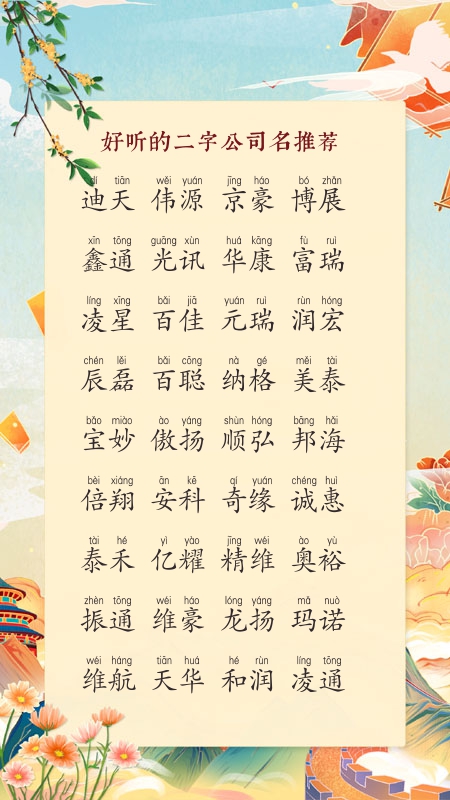 好听的二字公司名推荐
dí tiān wěi yuán jīng háo bó zhǎn
迪天 伟源 京豪 博展
xīn tōng guāng xùn huá kāng fù ruì
鑫通 光讯 华康 富瑞
líng xīng bǎi jiā yuán ruì rùn hóng
凌星 百佳 元瑞 润宏
chén lěi bǎi cōng nà gé měi tài
辰磊 百聪 纳格 美泰
bǎo miào ào yáng shùn hóng bāng hǎi
宝妙 傲扬 顺弘 邦海
bèi xiáng ān kē qí yuán chéng huì
倍翔 安科 奇缘 诚惠
tài hé yì yào jīng wéi ào yù
泰禾 亿耀 精维 奥裕
zhèn tōng wéi háo lóng yáng mǎ nuò
振通 维豪 龙扬 玛诺
wéi háng tiān huá hé rùn líng tōng
维航 天华 和润 凌通